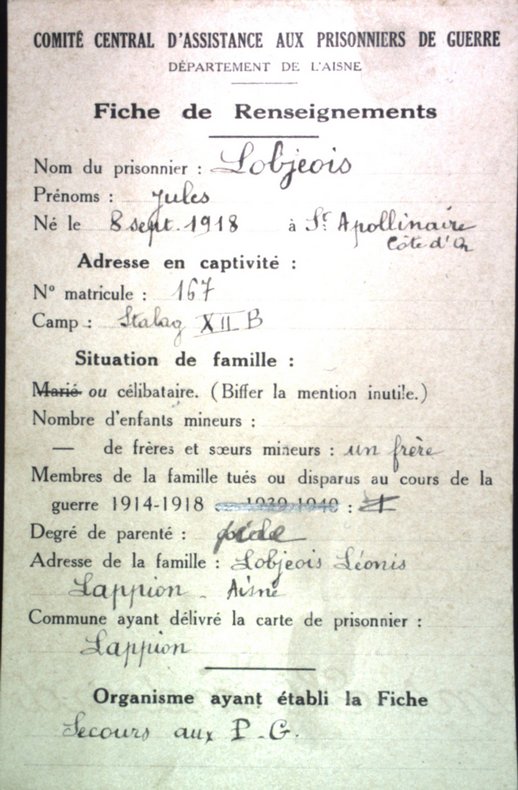 COMITÉ CENTRAL D'ASSISTANCE AUX PRISONNIERS DE GUERRE
DÉPARTEMENT DE L'AISNE
Fiche de Renseignements
Nom du prisonnier : Lobjeois
Prénoms : Jules
Né le 8 sept. 1918 à St Apollinaire
Côte d'Or
Adresse en captivité :
N° matricule : 167
Camp : Stalag XII B
Situation de famille :
Marié ou célibataire. (Biffer la mention inutile.)
Nombre d'enfants mineurs :
— de frères et sœurs mineurs : un frère
Membres de la famille tués ou disparus au cours de la
guerre 1914-1918 1939-1940 :
Degré de parenté :
Adresse de la famille : Lobjeois Léonis
Lappion - Aisne
Commune ayant délivré la carte de prisonnier :
Lappion
Organisme ayant établi la Fiche
Secours aux P.G.